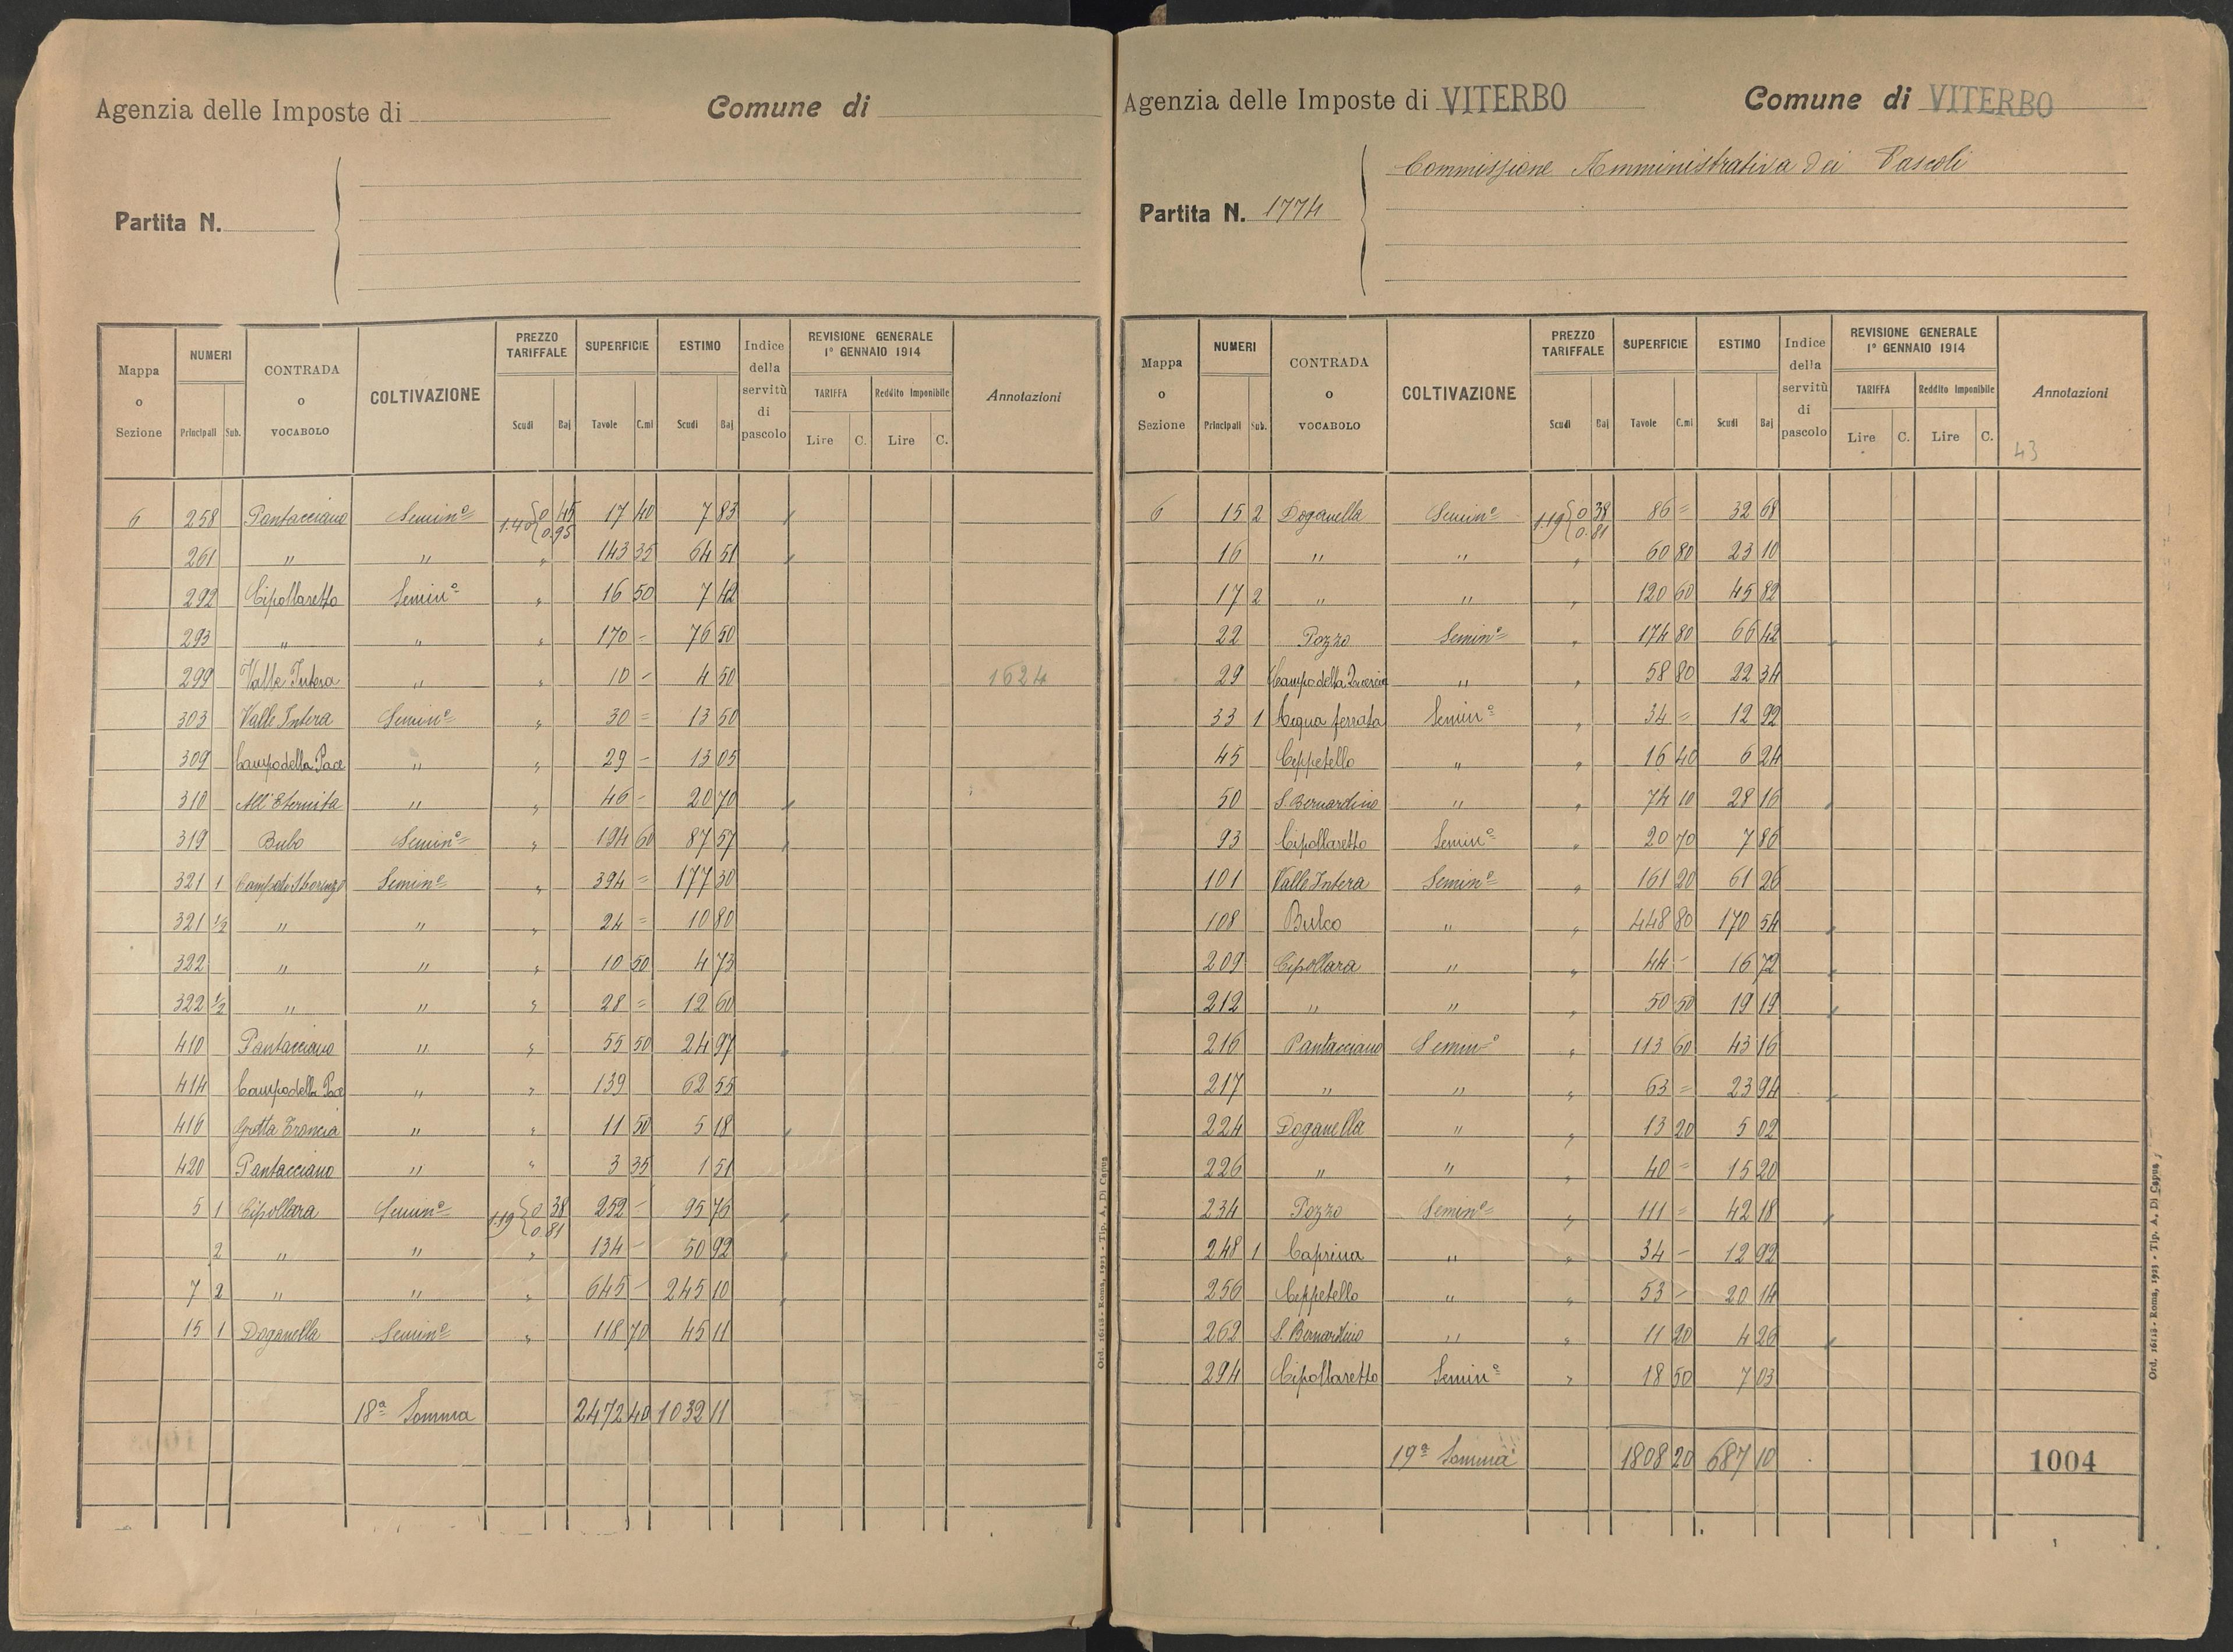 Agenzia delle Imposte di
Comune di
Partita N.
Mappa o Sezione | NUMERI Principali Sub. | CONTRADA o VOCABOLO | COLTIVAZIONE | PREZZO TARIFFALE Scudi Baj | SUPERFICIE Tavole C.mi | ESTIMO Scudi Baj | Indice della servitù di pascolo | REVISIONE GENERALE 1° GENNAIO 1914 TARIFFA Lire C. Reddito Imponibile Lire C. | Annotazioni
6 258 Pantacciano Semin.º 1.40 { 0 45 0.95 17 40 7 83
261 " " " 143 35 64 51
292 Cipollaretto Semin.º " 16 50 7 42
293 " " " 170 = 76 50
299 Valle Intera " " 10 - 4 50 1624
303 Valle Intera Semin.º " 30 = 13 50
309 Campo della Pace " " 29 - 13 05
310 All'Eternita " " 46 - 20 70
319 Bubo Semin.º " 194 60 87 57
321 1 Campo di S. Lorenzo Semin.º " 394 = 177 30
321 1/2 " " " 24 = 10 80
322 " " " 10 50 4 73
322 1/2 " " " 28 = 12 60
410 Pantacciano " " 55 50 24 97
414 Campo della Pace " " 139 62 55
416 Grotta " " 11 50 5 18
420 Pantacciano " " 3 35 1 51
5 1 Cipollara Semin.º 1.19 { 0 38 0.81 252 - 95 76
2 " " " 134 - 50 92
7 2 " " " 645 - 245 10
15 1 Doganella Semin.º " 118 70 45 11
18ª Somma 2472 40 1032 11
Ord. 16118 - Roma, 1923 - Tip. A. Di Capua
Agenzia delle Imposte di VITERBO
Comune di VITERBO
Commissione Amministrativa dei Pascoli
Partita N. 1774
Mappa o Sezione | NUMERI Principali Sub. | CONTRADA o VOCABOLO | COLTIVAZIONE | PREZZO TARIFFALE Scudi Baj | SUPERFICIE Tavole C.mi | ESTIMO Scudi Baj | Indice della servitù di pascolo | REVISIONE GENERALE 1° GENNAIO 1914 TARIFFA Lire C. Reddito Imponibile Lire C. | Annotazioni
43
6 15 2 Doganella Semin.º 1.19 { 0 38 0.81 86 = 32 68
16 " " " 60 80 23 10
17 2 " " " 120 60 45 82
22 Pozzo Semin.º " 174 80 66 42
29 Campo della Quercia " " 58 80 22 34
33 1 Acqua ferrata Semin.º " 34 = 12 92
45 Ceppetello " " 16 40 6 24
50 S. Bernardino " " 74 10 28 16
93 Cipollaretto Semin.º " 20 70 7 86
101 Valle Intera Semin.º " 161 20 61 26
108 Bulco " " 448 80 170 54
209 Cipollara " " 44 - 16 72
212 " " " 50 50 19 19
216 Pantacciano Semin.º " 113 60 43 16
217 " " " 63 = 23 94
224 Doganella " " 13 20 5 02
226 " " " 40 = 15 20
234 Pozzo Semin.º " 111 = 42 18
248 1 Caprina " " 34 - 12 92
256 Ceppetello " " 53 - 20 14
262 S. Bernardino " " 11 20 4 26
294 Cipollaretto Semin.º " 18 50 7 03
19ª Somma 1808 20 687 10
1004
Ord. 16118 - Roma, 1923 - Tip. A. Di Capua